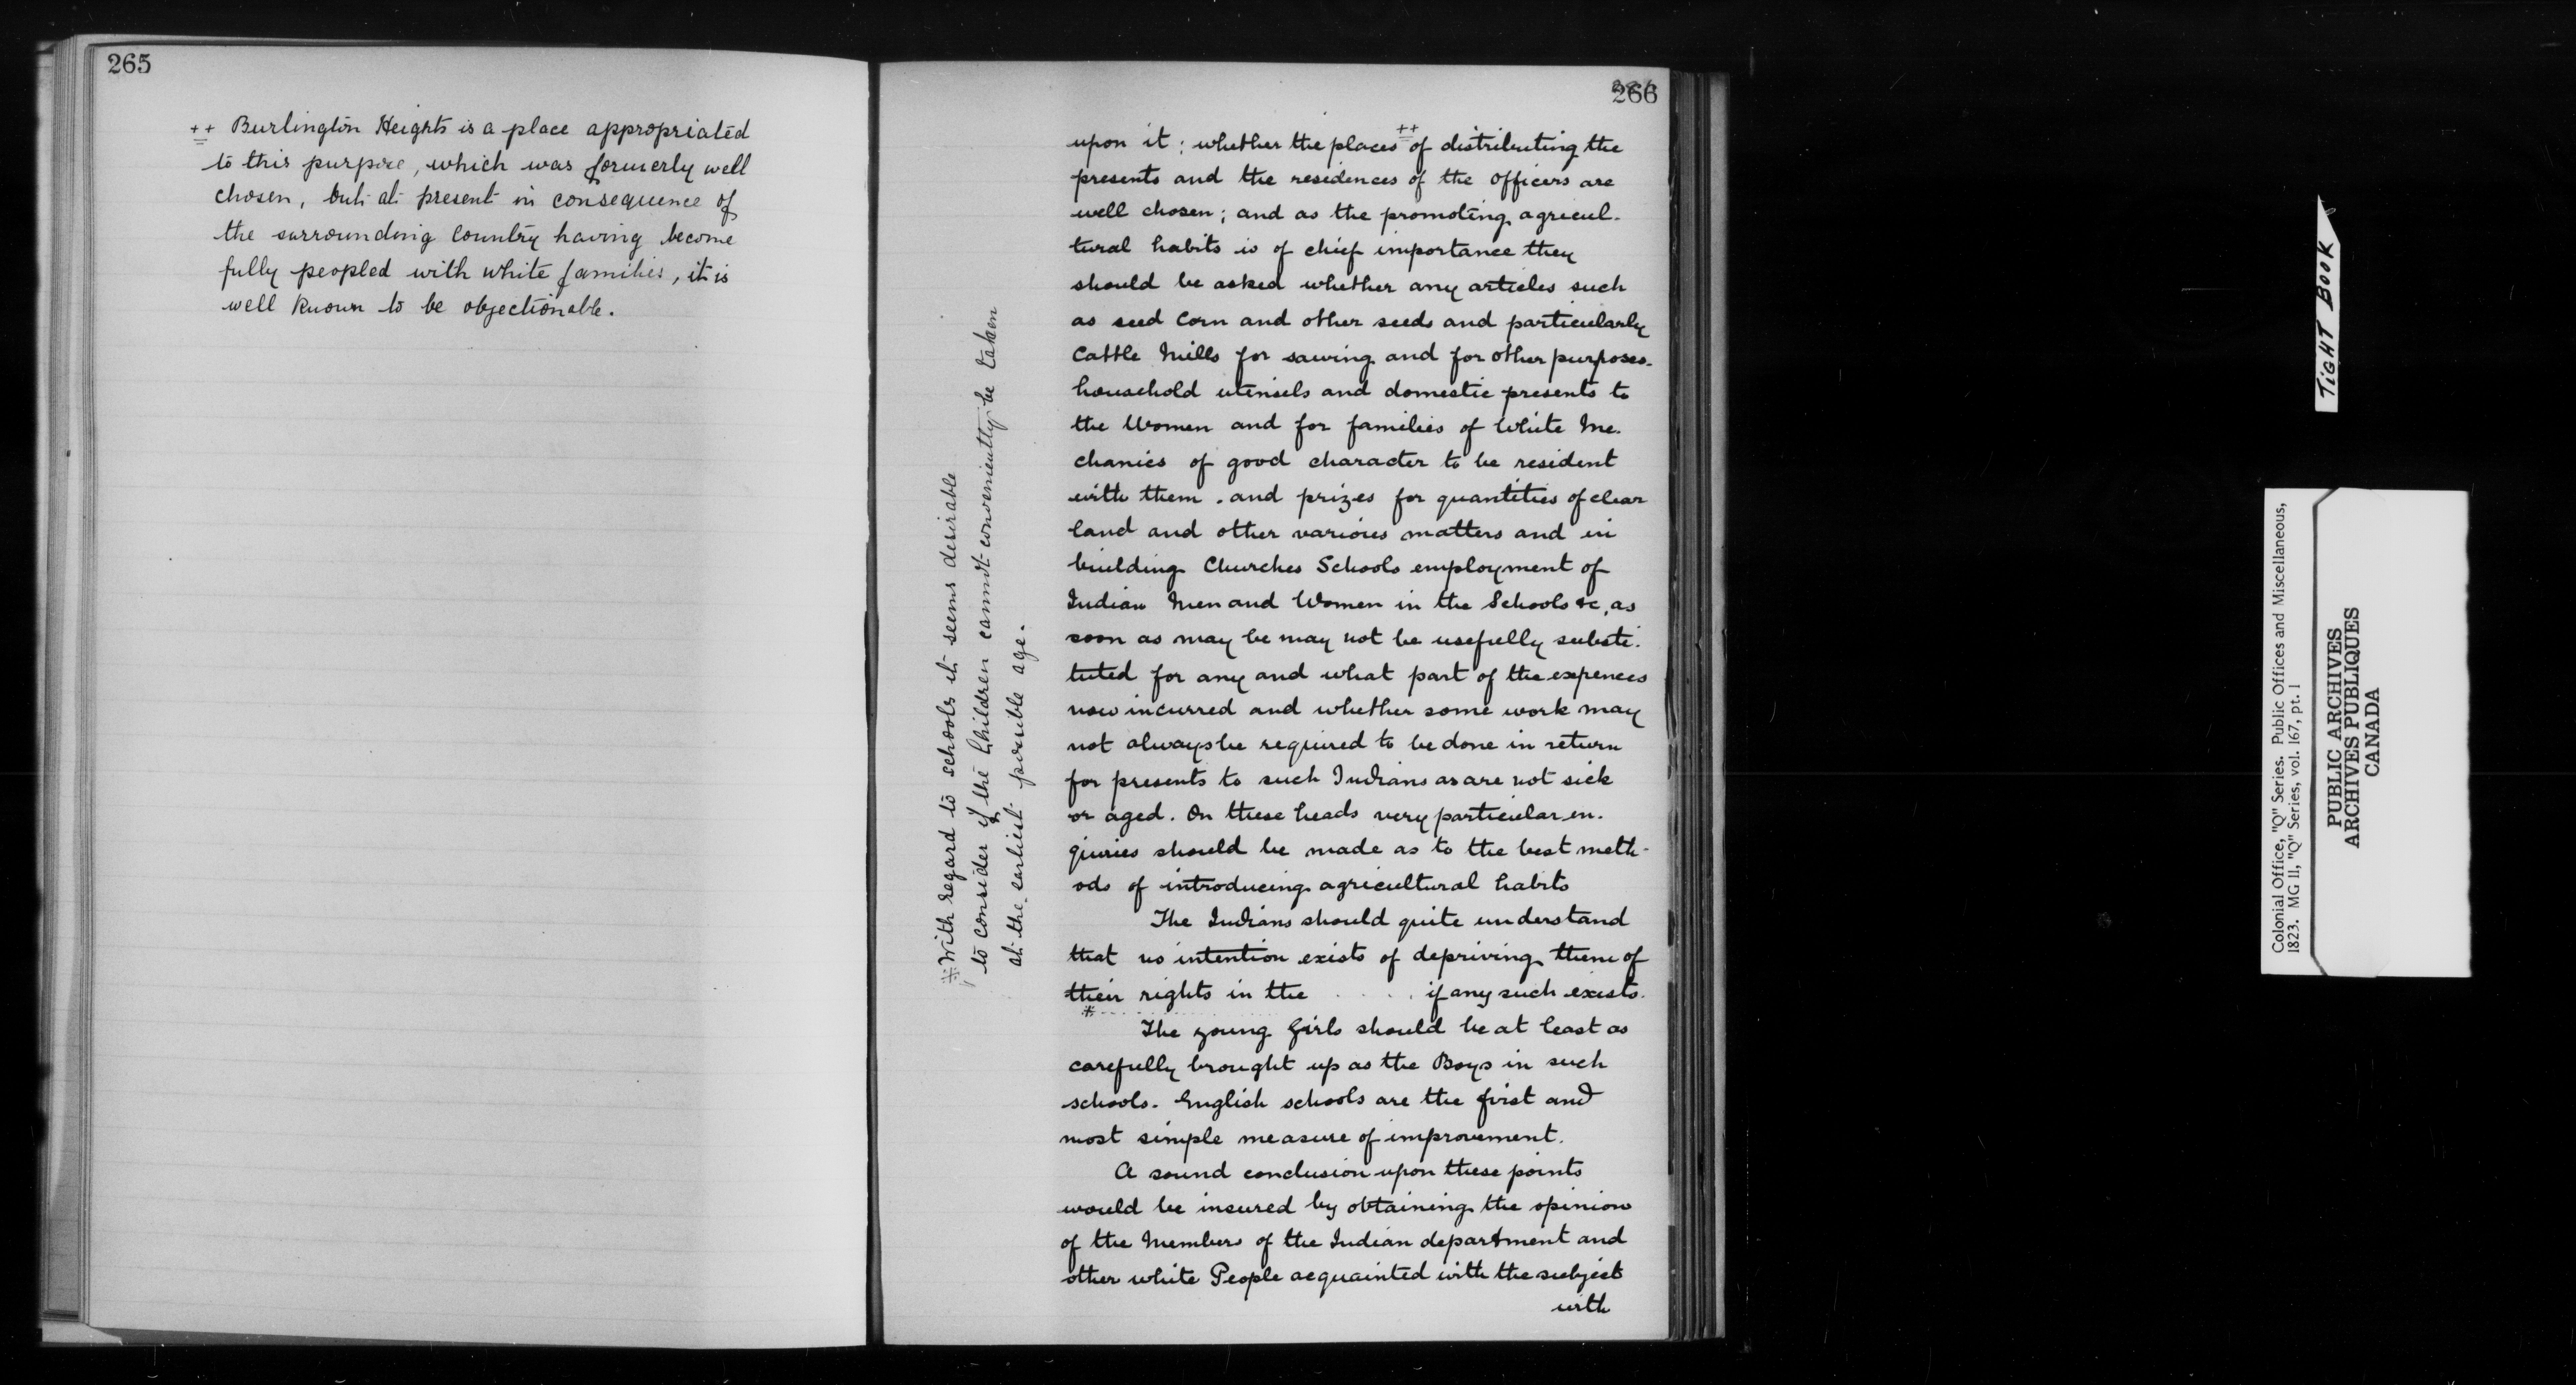 265
++ Burlington Heights is a place appropriated
to this purpose, which was formerly well
chosen, but at present in consequence of
the surrounding Country having become
fully peopled with white families, it is
well known to be objectionable.
266
upon it; whether the places ++ of distributing the
presents and the residences of the officers are
well chosen; and as the promoting agricul-
tural habits is of chief importance they
should be asked whether any articles such
as seed Corn and other seeds and particularly
Cattle Mills for sawing and for other purposes.
household utensels and domestic presents to
the Women and for families of White Me-
chanics of good character to be resident
with them. and prizes for quantities of clear
land and other various matters and in
building Churches Schools employment of
Indian Men and Women in the Schools &c, as
soon as may be may not be usefully substi-
tuted for any and what part of the expences
now incurred and whether some work may
not always be required to be done in return
for presents to such Indians as are not sick
or aged. On these heads very particular en-
quiries should be made as to the best meth-
ods of introducing agricultural habits
The Indians should quite understand
that no intention exists of depriving them of
their rights in the . . . . . if any such exists.
*
The young Girls should be at least as
carefully brought up as the Boys in such
schools. English schools are the first and
most simple measure of improvement.
A sound conclusion upon these points
would be insured by obtaining the opinion
of the Members of the Indian department and
other white People acquainted with the subject
with
* With regard to schools it seems desirable
to consider if the Children cannot conveniently be taken
at the earliest possible age.
TIGHT BOOK
Colonial Office, "Q" Series. Public Offices and Miscellaneous,
1823. MG 11, "Q" Series, vol. 167, pt. 1
PUBLIC ARCHIVES
ARCHIVES PUBLIQUES
CANADA